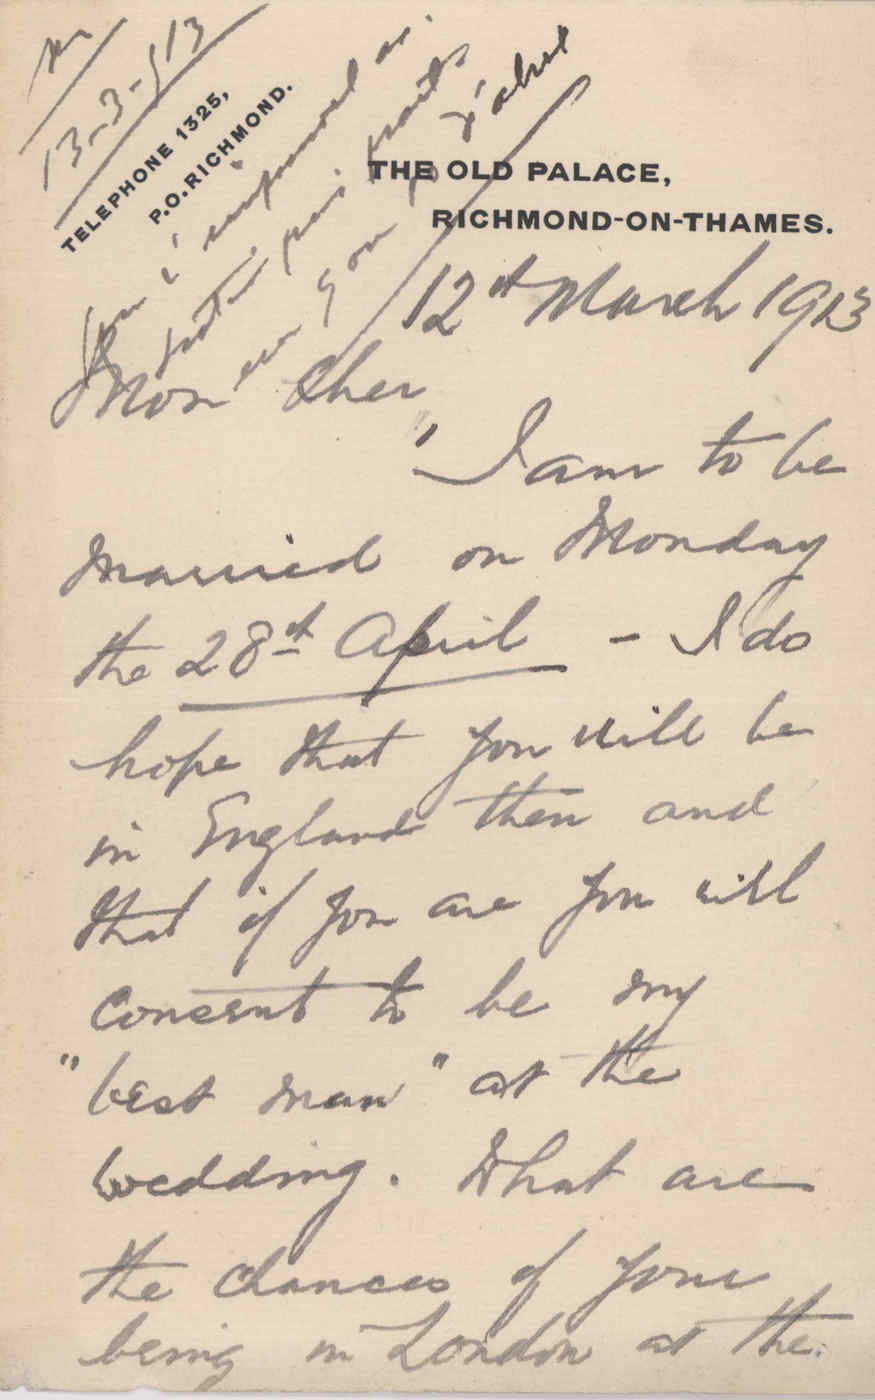 13-3-913
TELEPHONE 1325,
P.O. RICHMOND.
THE OLD PALACE,
RICHMOND-ON-THAMES.
12th March 1913
Mon cher
"I am to be
married on Monday
the 28th April – I do
hope that you will be
in England then and
that if you are you will
consent to be my
"best man" at the
wedding. What are
the chances of your
being in London at the